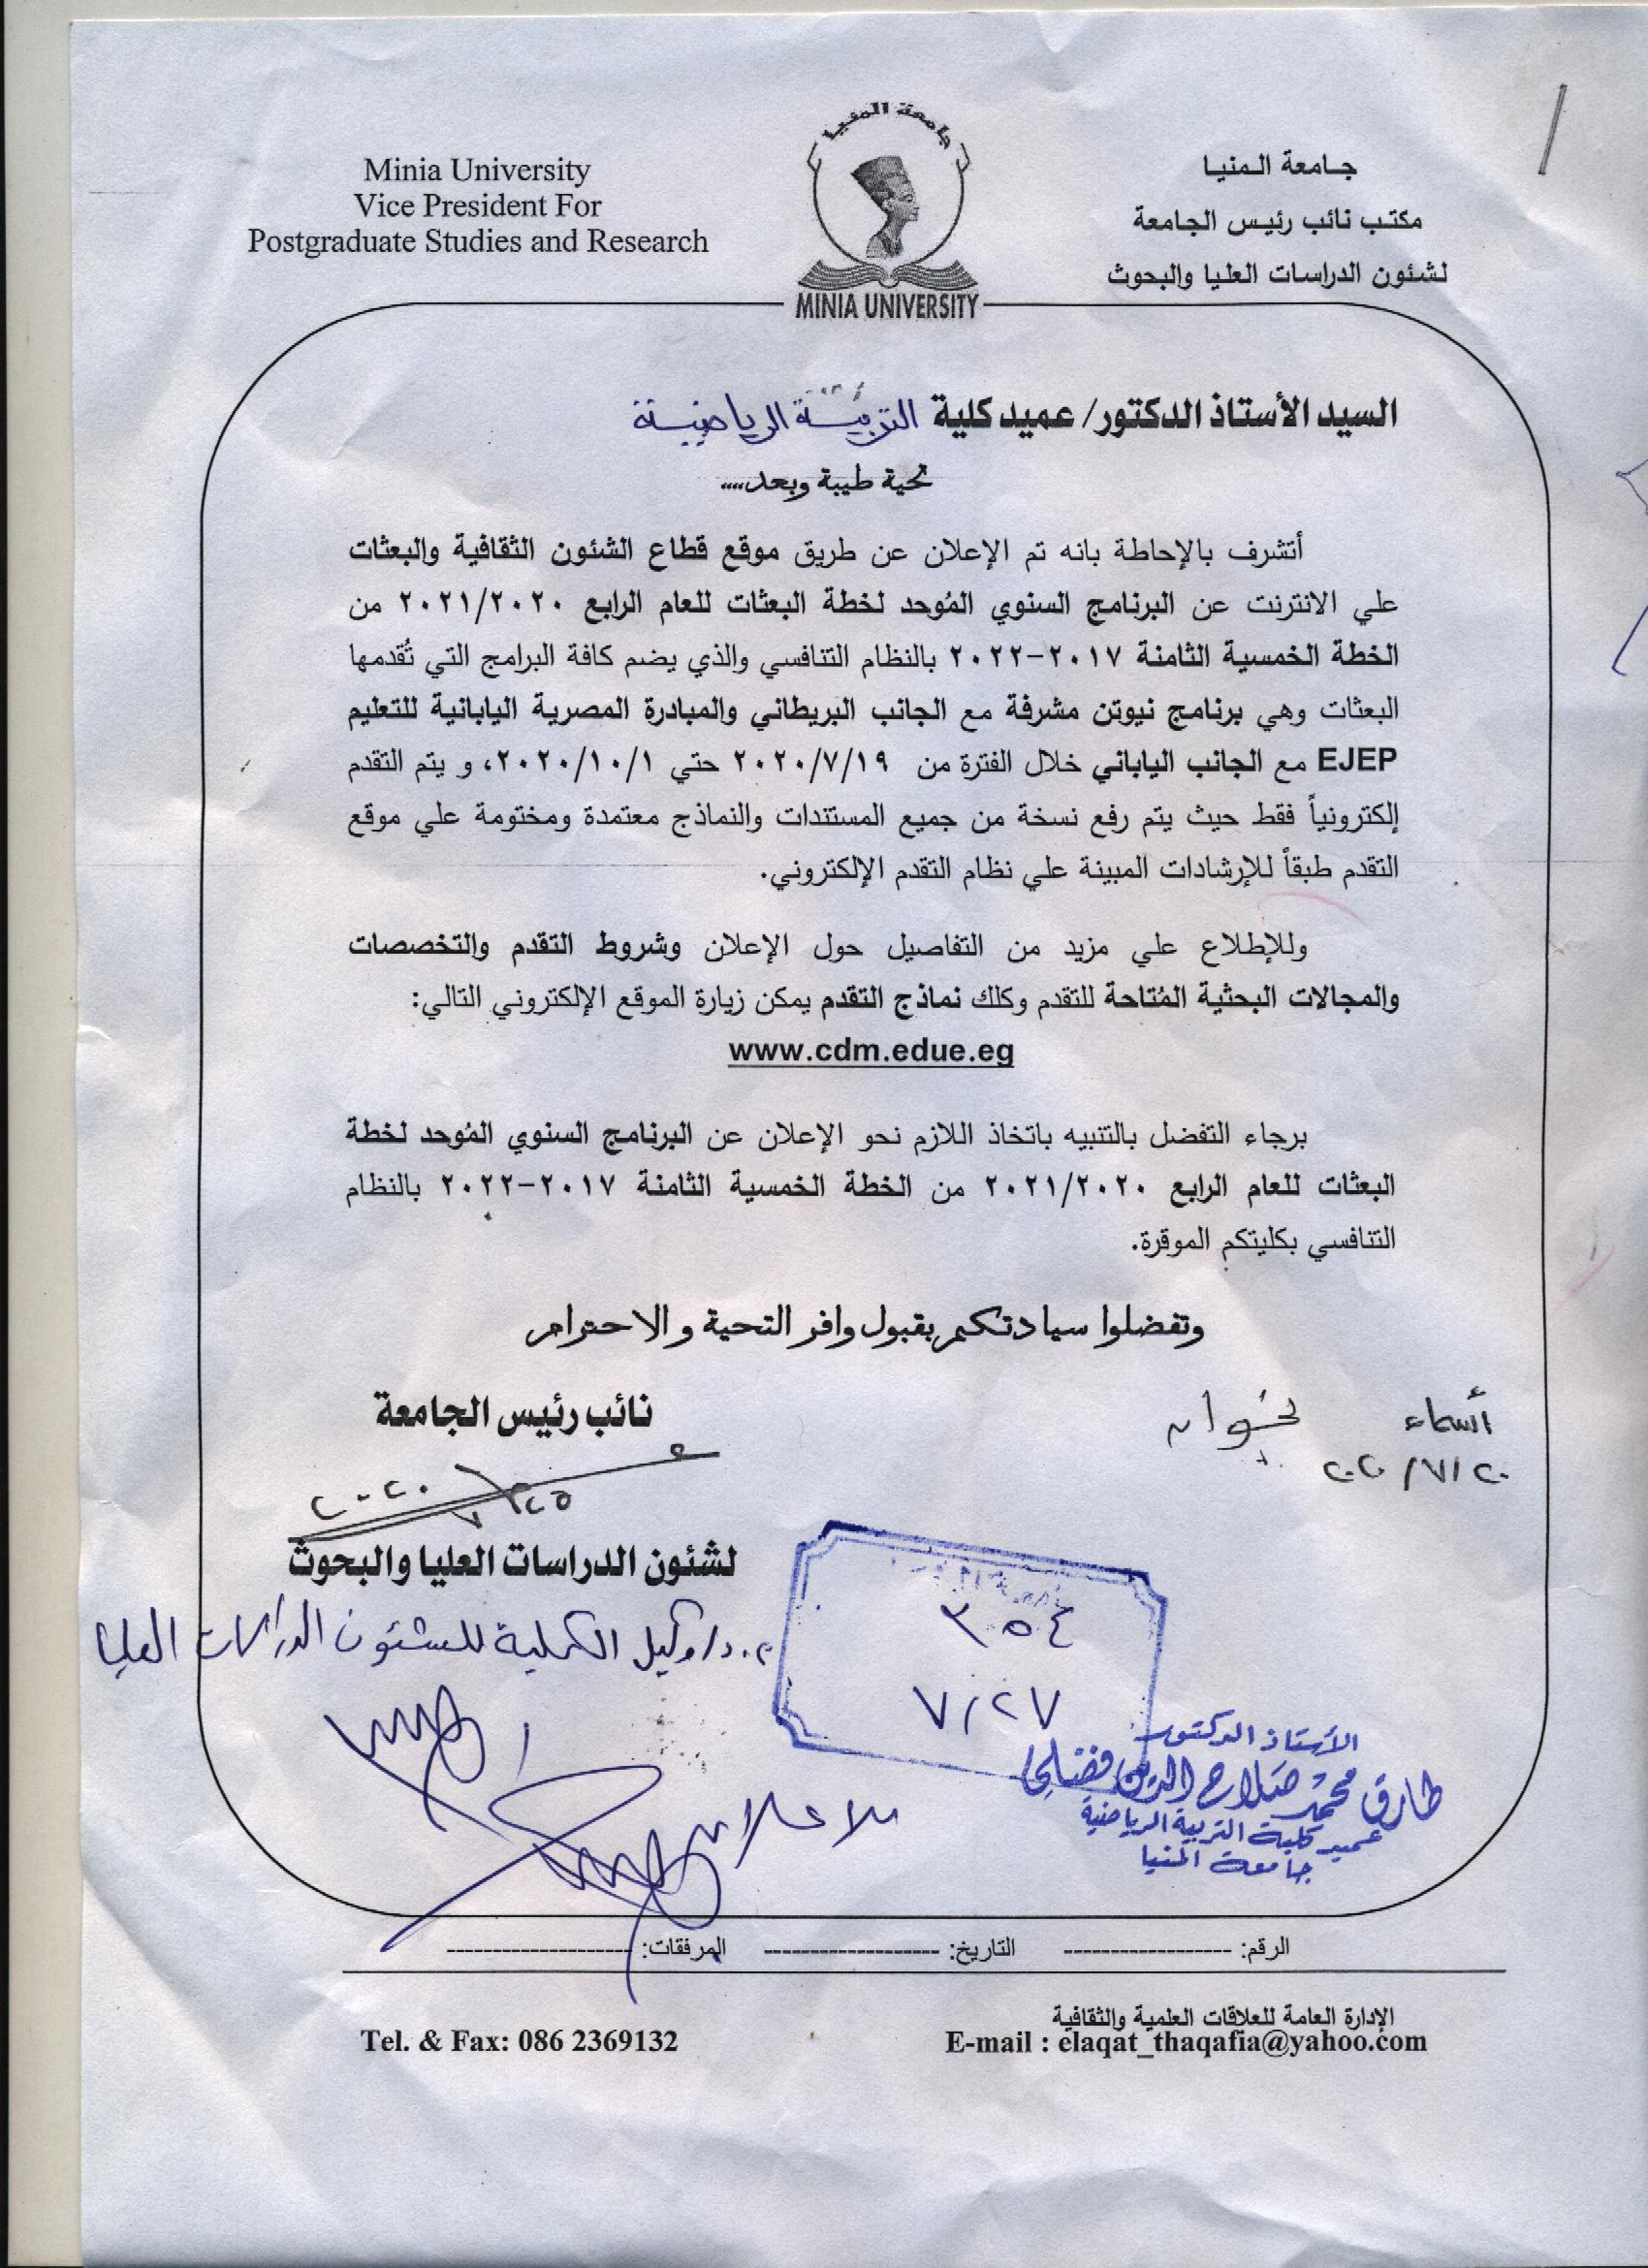 Minia University
Vice President For
Postgraduate Studies and Research
جامعة المنيا
MINIA UNIVERSITY
جامعة المنيا
مكتب نائب رئيس الجامعة
لشئون الدراسات العليا والبحوث
السيد الأستاذ الدكتور/ عميد كلية التربية الرياضية
تحية طيبة وبعد.....
أتشرف بالإحاطة بانه تم الإعلان عن طريق موقع قطاع الشئون الثقافية والبعثات
علي الانترنت عن البرنامج السنوي المُوحد لخطة البعثات للعام الرابع ٢٠٢١/٢٠٢٠ من
الخطة الخمسية الثامنة ٢٠١٧-٢٠٢٢ بالنظام التنافسي والذي يضم كافة البرامج التي تُقدمها
البعثات وهي برنامج نيوتن مشرفة مع الجانب البريطاني والمبادرة المصرية اليابانية للتعليم
EJEP مع الجانب الياباني خلال الفترة من ٢٠٢٠/٧/١٩ حتي ٢٠٢٠/١٠/١، و يتم التقدم
إلكترونياً فقط حيث يتم رفع نسخة من جميع المستندات والنماذج معتمدة ومختومة علي موقع
التقدم طبقاً للإرشادات المبينة علي نظام التقدم الإلكتروني.
وللإطلاع علي مزيد من التفاصيل حول الإعلان وشروط التقدم والتخصصات
والمجالات البحثية المُتاحة للتقدم وكلك نماذج التقدم يمكن زيارة الموقع الإلكتروني التالي:
www.cdm.edue.eg
برجاء التفضل بالتنبيه باتخاذ اللازم نحو الإعلان عن البرنامج السنوي المُوحد لخطة
البعثات للعام الرابع ٢٠٢١/٢٠٢٠ من الخطة الخمسية الثامنة ٢٠١٧-٢٠٢٢ بالنظام
التنافسي بكليتكم الموقرة.
وتفضلوا سيادتكم بقبول وافر التحية والاحترام
أسماء
٢٠٢٠/٧/٢٠
نائب رئيس الجامعة
٢٠٢٠
لشئون الدراسات العليا والبحوث
أ.د/ وكيل الكلية للشئون الدراسات العليا
٣٥٤
٧/٢٧
للاعلان
الأستاذ الدكتور
طارق محمد صلاح الدين فضلي
عميد كلية التربية الرياضية
جامعة المنيا
الرقم: ------------------ التاريخ: ------------------- المرفقات: --------------------
الإدارة العامة للعلاقات العلمية والثقافية
E-mail : elaqat_thaqafia@yahoo.com
Tel. & Fax: 086 2369132